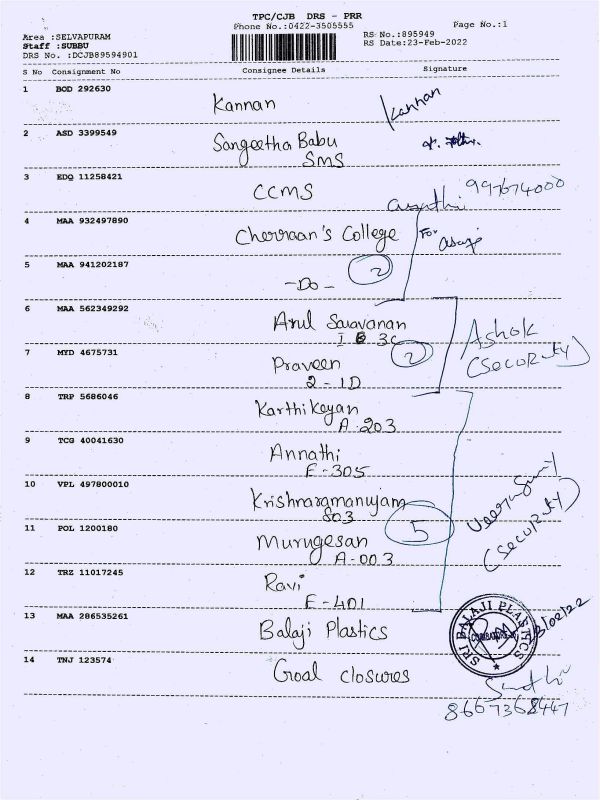 TPC/CJB DRS - PRR
Phone No.:0422-3505555
Page No.:1
Area :SELVAPURAM
Staff :SUBBU
DRS No. :DCJB89594901
RS No.:895949
RS Date:23-Feb-2022
S No Consignment No Consignee Details Signature
1 BOD 292630 Kannan Kannan
2 ASD 3399549 Sangeetha Babu
SMS
3 EDQ 11258421 CCMS
997674000
4 MAA 932497890 Cherraan's College For
5 MAA 941202187 -Do- 2
6 MAA 562349292 Arul Saravanan
I B 3C
7 MYD 4675731 Praveen 2
2-1D
Ashok
(Security)
8 TRP 5686046 Karthikeyan
A-203
9 TCG 40041630 Annathi
F-305
10 VPL 497800010 Krishnaramanujam
803
5
(Security)
11 POL 1200180 Murugesan
A-003
12 TRZ 11017245 Ravi
F-401
13 MAA 286535261 Balaji Plastics
SRI BALAJI PLASTICS
COIMBATORE
14 TNJ 123574 Goal closures
8667368447